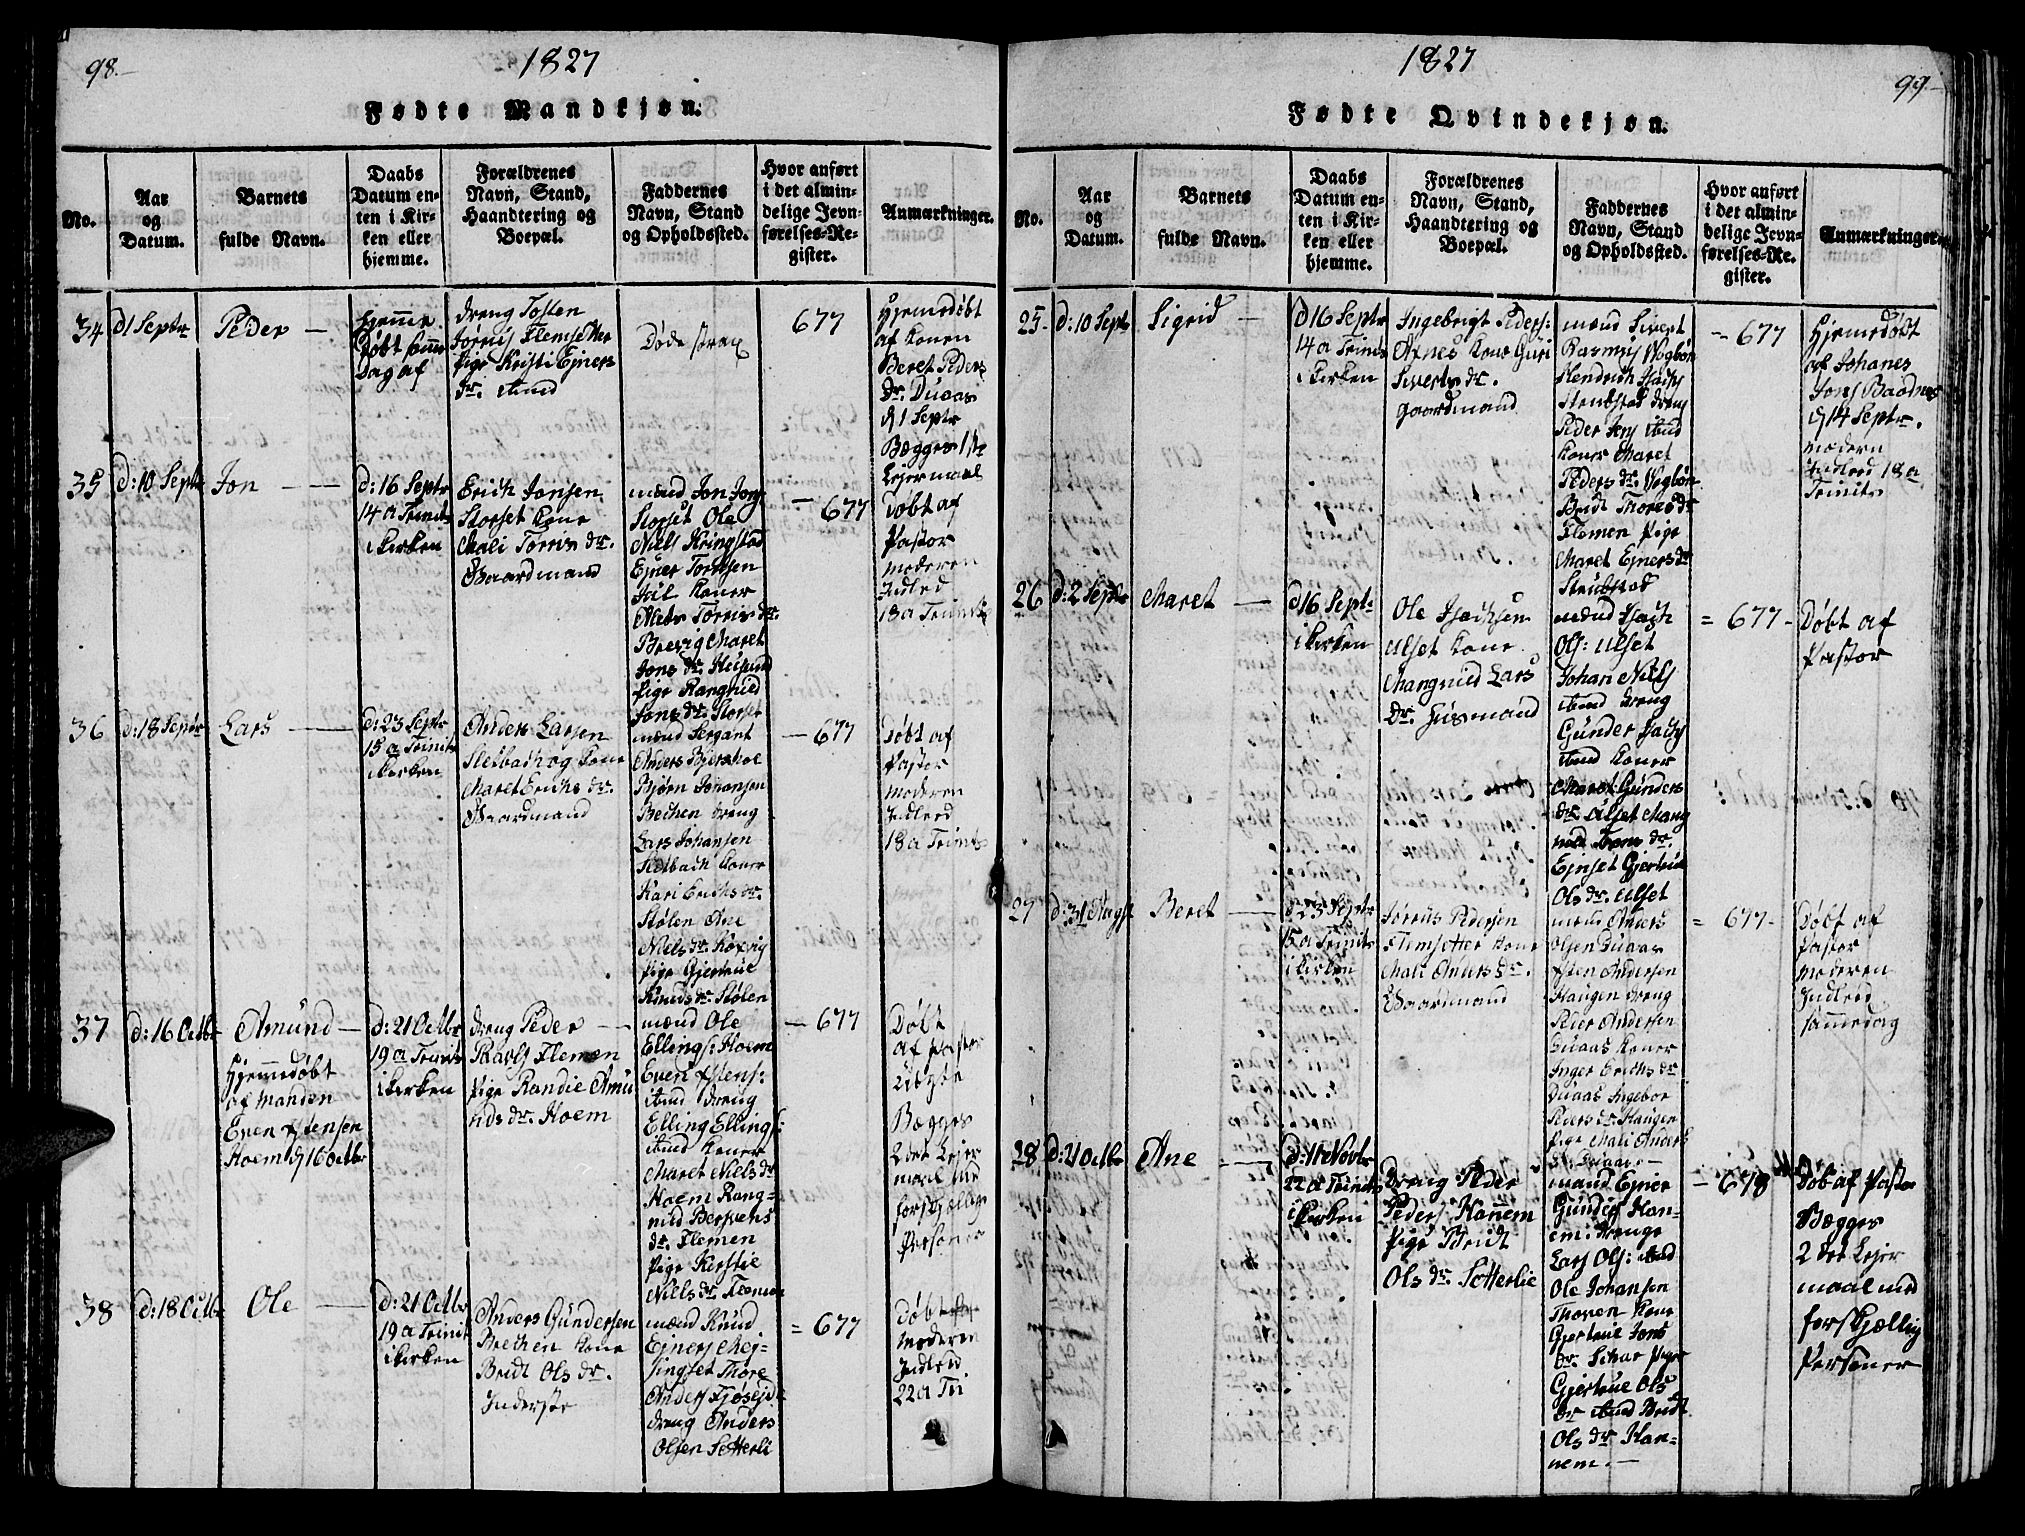 98.
1827
Fødte Mandkjøn.
No.
Aar
og
Datum.
Barnets
fulde Navn.
Daabs
Datum en-
ten i Kir-
ken eller
hjemme.
Forældrenes
Navn, Stand,
Haandtering og
Boepæl.
Faddernes
Navn, Stand
og Opholdssted.
Hvor anført
i det almin-
delige Jevn-
førelses-Re-
gister.
Anmærkninger.
34
d1 Septr
Peder
Hjemme
døbt samme
Dag af
dreng Tosten
Jørris Flemsetter
Pige Kristi Ejners
dr. ibmd
Døde strax
677
Hjemedøbt
af Konen
Beret Peders
dr. Duaas
d1 Septr
Begges 1ste
Lejermaal
35
d:10 Septr
Jon
d:16 Septr
14 a Trinits
i Kirken
Erich Jonsen
Storset Kone
Mali Torris dr.
Gaardmand
mænd Jon Jons
Storset Ole
Niels Kringstad
Ejner Torrisen
Koner
Mets Torris dr.
Brevig Maret
Jons dr.
Pige Rangnied
Jons dr. Storset
677
Døbt af
Pastor
Moderen
Indled
18 a Trinits
36
d:18 Septr
Lars
d:23 Septr
15 a Trinits
i Kirken
Anders Larsen
Stelbachog Kone
Maret Erichs dr.
Gaardmand
mænd Sergant
Anders
Bjørn Johansen
Bechen dreng
Lars Johansen
Stelbach Koner
Kari Erichs dr.
Stølen Ane
Niels dr. Røxvig
Pige Gjertrue
Knuds dr. Stølen
677
Døbt af
Pastor
Moderen
Indleed
18 a Trinits
37
d:16 Octbr
Amund
Hjemmedøbt
af Manden
Even Østensen
Hoem d 16 Octbr
d:21 Octbr
19 a Trinits
i Kirken
dreng Peder
Flemen
Pige Randie Amu
nds dr. Hoem
mænd Ole
Ellings: Hoem
Even Østens:
ibmd dreng
Elling Ellings:
ibmd Koner
Maret Niels dr
Hoem Rang-
nied
dr. Flemen
Pige Kirstie
Niels dr. Flemen
677
Døbt
af Pastor
Begges
2det Lejer
maal med
forskjællige
Personer
38
d:18 Octbr
Ole
d:21 Octbr
19 a Trinit
i Kirken
Anders Gundersen
Brechen Kone
Bridt Ols dr.
Inderste
mænd Knud
Ejners Mej-
singset Thore
Anders
dreng Anders
Olsen Setterli
677
Døbt
Moderen
Indleid
22 a Tri
99.
1827
Fødte Qvindekjøn.
No.
Aar
og
Datum.
Barnets
fulde Navn.
Daabs
Datum en-
ten i Kir-
ken eller
hjemme.
Forældrenes
Navn, Stand,
Haandtering og
Boepæl.
Faddernes
Navn, Stand
og Opholdssted.
Hvor anført
i det almin-
delige Jevn-
førelses-Re-
gister.
Anmærkninger
25
d:10 Septr
Sigrid
d16 Septr
14 a Trinits
i Kirken
Ingebrigt Peders:
Axnes Kone Guri
Siverts dr.
Gaardmand
mænd Sivert
Rasmus Vogbøn
Hendrich Isachs
Strubstad dreng
Peder Jens ibmd
Koner Maret
Peders dr. Vogbøn
Bridt Thores dr
Flemen Pige
Maret Ejners dr
Strubstad
677
Hjemedøbt
af Johanes
Jons Baadnes
d 14 Septr.
Modern
Indleed 18 a
Trinits
26
d:2 Septr
Maret
d16 Septr
i Kirken
Ole Isachsen
Ulset Kone
Mangnild Lars
dr. Husmand
mænd Isach
Ols: Ulset
Johan Niels
ibmd dreng
Gunder Isachs
ibmd Koner
Maret Gunders
dr. Ulset Mang
nild Tron dr.
Ejnset Gjertrue
Ols dr. Ulset
677
Døbt af
Pastor
27
d:31 Augst
Beret
d23 Septr
15 a Trinits
i Kirken
Jørris Pedersen
Flemsetter Kone
Mali Anders dr.
Gaardmand
mænd Anders
Olsen Duaas
Østen Andersen
Haugen dreng
Peder Andersen
Duaas Koner
Inger Erichs dr
Duaas Ingebor
Peders dr. Haugen
Pige Mali Anders
dr. Duaas
677
Døbt af
Pastor
Moderen
Indleed
sammedag
28
Octbr
Ane
d:11 Novbr
22 a Trinits
i Kirken
Dreng Peder
Peders Hannem
Pige Bridt
Ols dr. Setterlie
mænd Ejner
Gunders Han-
em. drenge
Lars Ols: ibmd
Ole Johansen
Thorven Kone
Gjertrue Jons
dr. Pige
Gjertrue Ols
dr ibmd Bridt
Ols dr Han-
nem.
678
Døb af Pastor
Begges
2det Lejer
maal med
forskjællig
Personer